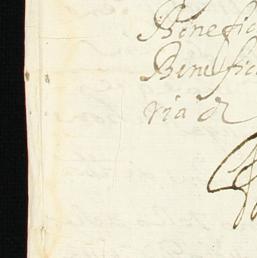 Benefic
Benefic
ria de